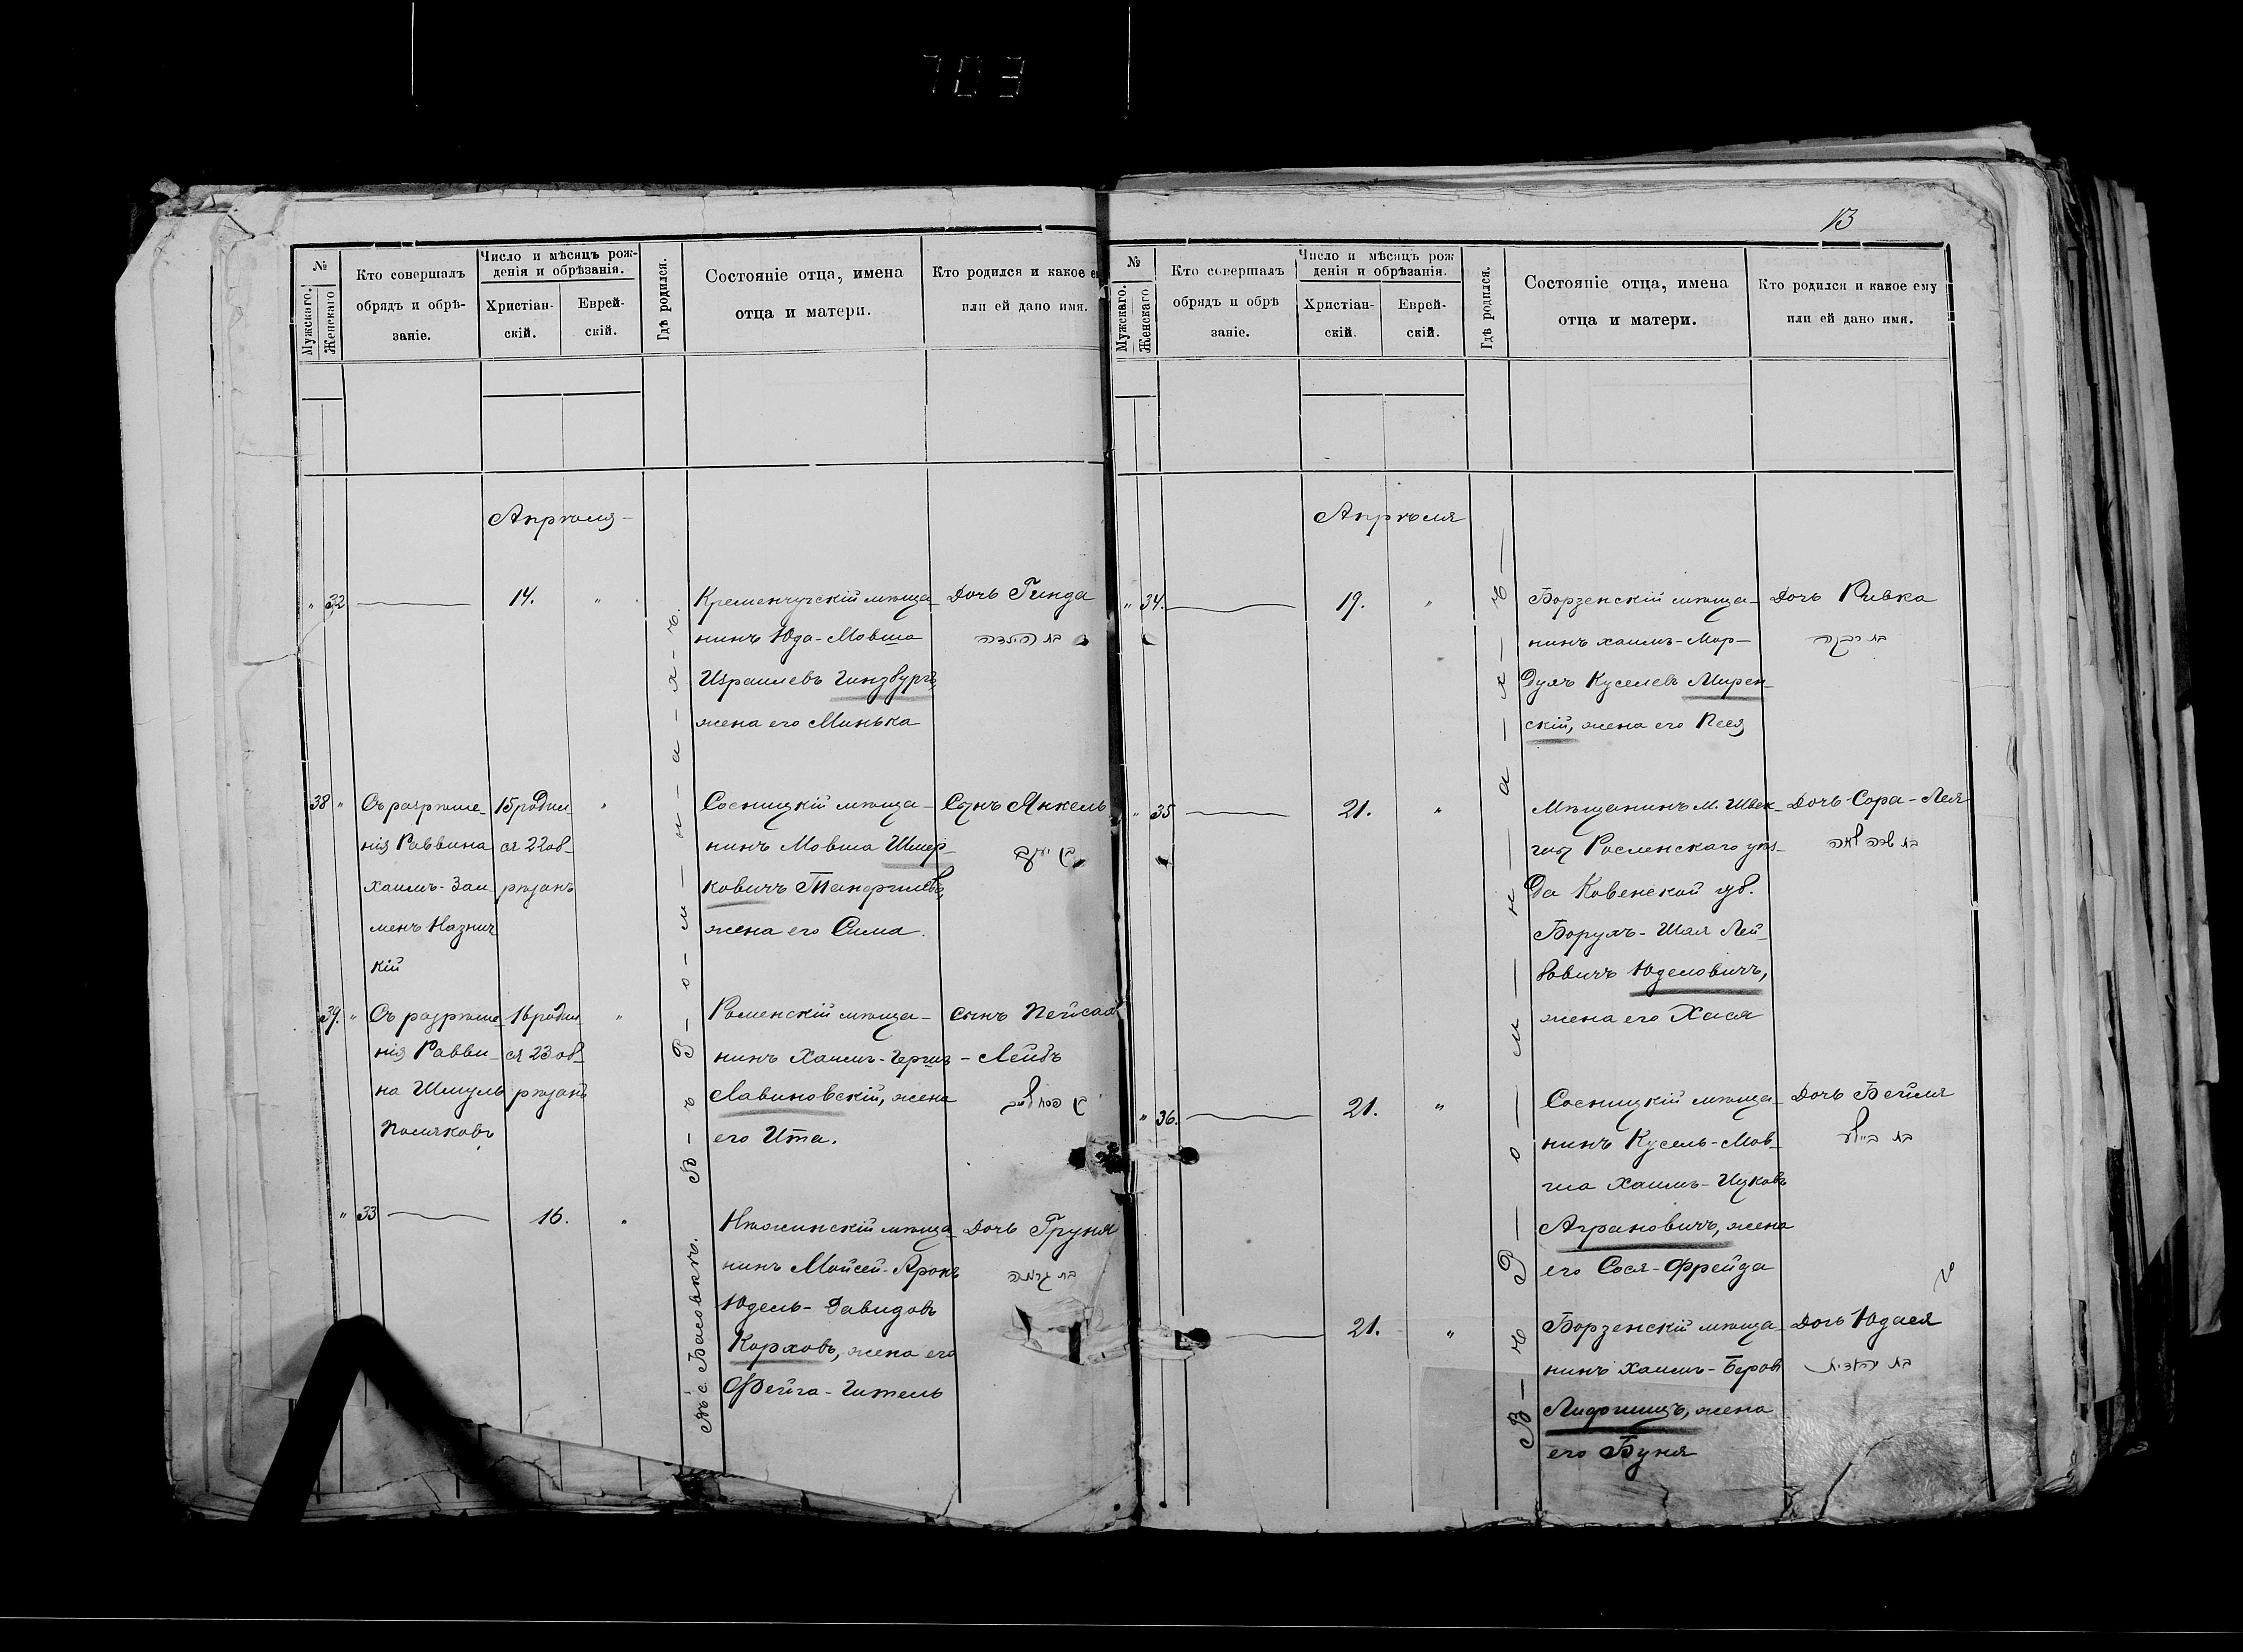 703
№
Мужскаго.
Женскаго
Кто совершалъ
обрядъ и обрѣ-
заніе.
Число и мѣсяцъ рож-
денія и обрѣзанія.
Христіан-
скій.
Еврей-
скій.
Гдѣ родился.
Состояніе отца, имена
отца и матери.
Кто родился и какое е
или ей дано имя.
Апрѣля
32
14.
Кременчугскій мѣща-
нинъ Юда-Мовша
Израилевъ Гинзбургъ,
жена его Минька
Дочь Гинда
38
Съ разрѣше-
нія Раввина
Хаимъ-Зал
менъ
кій
15 родил
ся 22 об-
рѣзанъ
Сосницкій мѣща-
нинъ Мовша Шмер-
ковичъ
жена его Сима.
Сынъ Янкель
בן יעקב
39.
Съ разрѣше-
нія Равви-
на Шмуль
Поляковъ
16 родил
ся 23 об-
рѣзанъ
Роменскій мѣща-
нинъ Хаимъ-Герша
Лавиновскій, жена
его Ита.
Сынъ Пейсах
-Лейбъ
בן פסח לייב
33
16.
Нѣжинскій мѣща-
нинъ Мойсей-Аронъ
Юдель-Давидовъ
Корховъ, жена его
Фейга-Гитель
Дочь Груня
В-ъ Р-о-м-н-а-х-ъ.
Въ с. Басовкѣ.
13
№
Мужскаго.
Женскаго
Кто совершалъ
обрядъ и обрѣ
заніе.
Число и мѣсяцъ рож
денія и обрѣзанія.
Христіан-
скій.
Еврей-
скій.
Гдѣ родился.
Состояніе отца, имена
отца и матери.
Кто родился и какое ему
или ей дано имя.
Апрѣля
34.
19.
Борзенскій мѣща-
нинъ Хаимъ-Мор-
духъ Куселевъ Мирен-
скій, жена его Песя
Дочь Ривка
בת רבקה
35
21.
Мѣщанинъ м. Швек-
шны Росіенскаго уѣз-
да Ковенской губ.
Борухъ-Шая Лей-
бовичъ Юделовичъ,
жена его Хася
Дочь Сора-Лея
בת שרה לאה
36.
21.
Сосницкій мѣща-
нинъ Кусель-Мов-
ша Хаимъ-Ицковъ
Аграновичъ, жена
его Сося-Фрейда
Дочь Бейля
בת ביילע
21.
Борзенскій мѣща-
нинъ Хаимъ-Беровъ
Лифшицъ, жена
его Буня
Дочь Юдася
בת יהודית
В-ъ Р-о-м-н-а-х-ъ